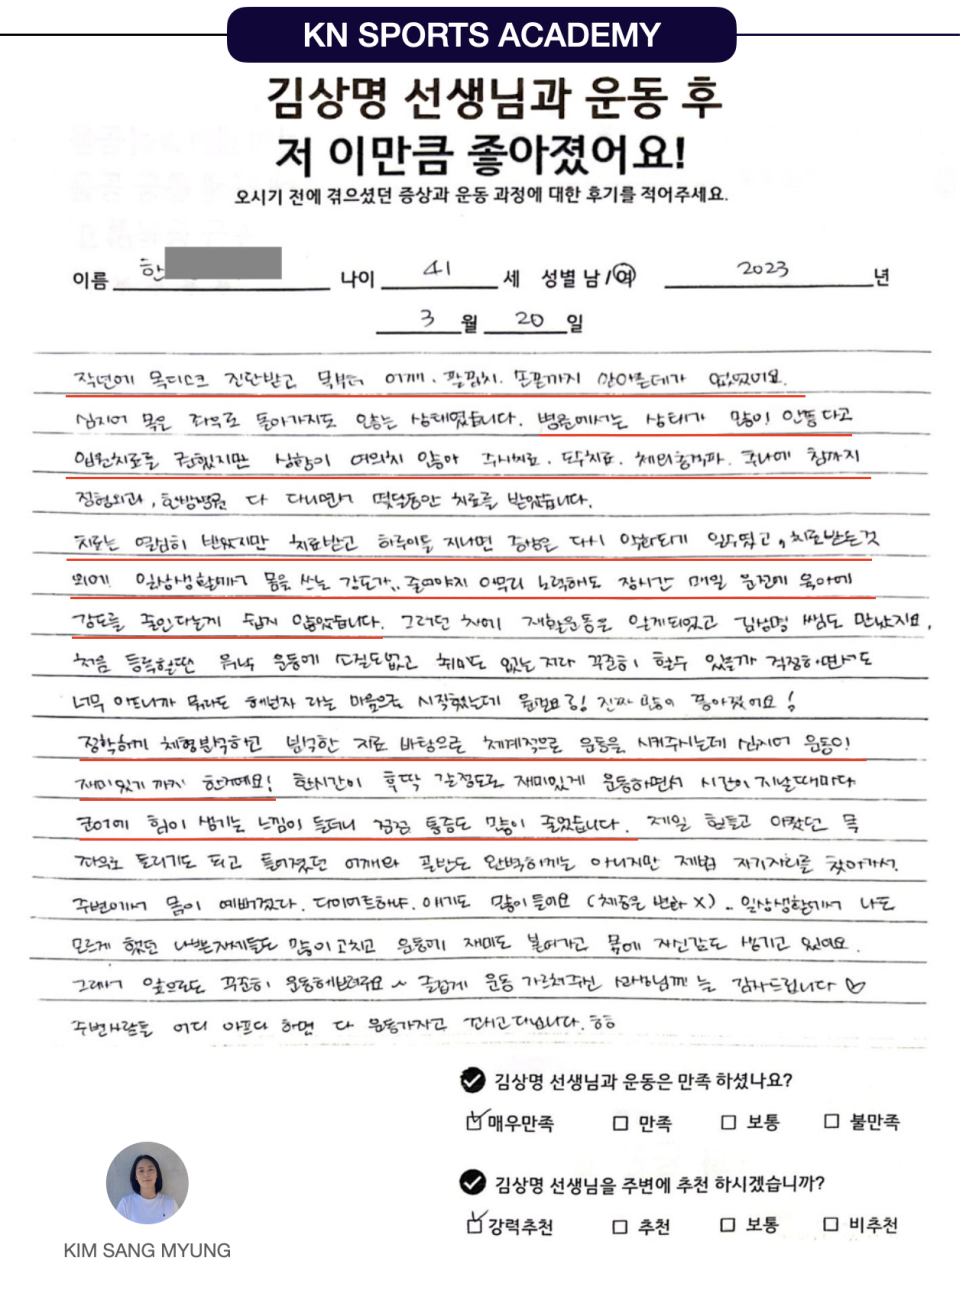 KN SPORTS ACADEMY
김상명 선생님과 운동 후
저 이만큼 좋아졌어요!
오시기 전에 겪으셨던 증상과 운동 과정에 대한 후기를 적어주세요.
이름 한 나이 41 세 성별 남/여 2023 년
3 월 20 일
작년에 목디스크 진단받고 목부터 어깨. 팔꿈치. 손끝까지 안아픈데가 없었어요.
심지어 목은 좌우로 돌아가지도 않는 상태였습니다. 병원에서는 상태가 많이 안좋다고
입원치료를 권했지만 상황이 여의치 않아 주사치료. 도수치료. 체외충격파. 추나에 침까지
정형외과, 한방병원 다 다니면서 몇달동안 치료를 받았습니다.
치료는 열심히 받았지만 치료받고 하루이틀 지나면 증상은 다시 악화되기 일수였고, 치료받는것
외에 일상생활에서 몸을 쓰는 강도가.. 줄여야지 아무리 노력해도 장시간 매일 운전에 육아에
강도를 줄인다는게 쉽지 않았습니다. 그러던 차에 재활운동을 알게되었고 김상명 쌤도 만났지요.
처음 등록할땐 워낙 운동에 소질도없고 취미도 없는 저라 꾸준히 할수 있을까 걱정하면서도
너무 아프니까 뭐라도 해보자 라는 마음으로 시작했는데 웬걸요! 진짜 많이 좋아졌어요!
정확하게 체형분석하고 분석한 자료 바탕으로 체계적으로 운동을 시켜주시는데 심지어 운동이
재미있기 까지 한거예요! 한시간이 후딱 갈정도로 재미있게 운동하면서 시간이 지날때마다
코어에 힘이 생기는 느낌이 들더니 점점 통증도 많이 줄었습니다. 제일 힘들고 아팠던 목
좌우로 돌리기도 되고 틀어졌던 어깨와 골반도 완벽하게는 아니지만 제법 자기자리를 찾아가서.
주변에서 몸이 예뻐졌다. 다이어트하냐. 얘기도 많이 들어요 (체중은 변화 X).. 일상생활에서 나도
모르게 했던 나쁜자세들도 많이 고치고 운동에 재미도 붙어가고 몸에 자신감도 생기고 있어요.
그래서 앞으로도 꾸준히 운동해보려구요~ 즐겁게 운동 가르쳐주신 선생님께 늘 감사드립니다 ♡
주변사람들 어디 아프다 하면 다 운동가자고 꼬시고다닙니다. ㅎㅎ
김상명 선생님과 운동은 만족 하셨나요?
매우만족 만족 보통 불만족
김상명 선생님을 주변에 추천 하시겠습니까?
강력추천 추천 보통 비추천
KIM SANG MYUNG